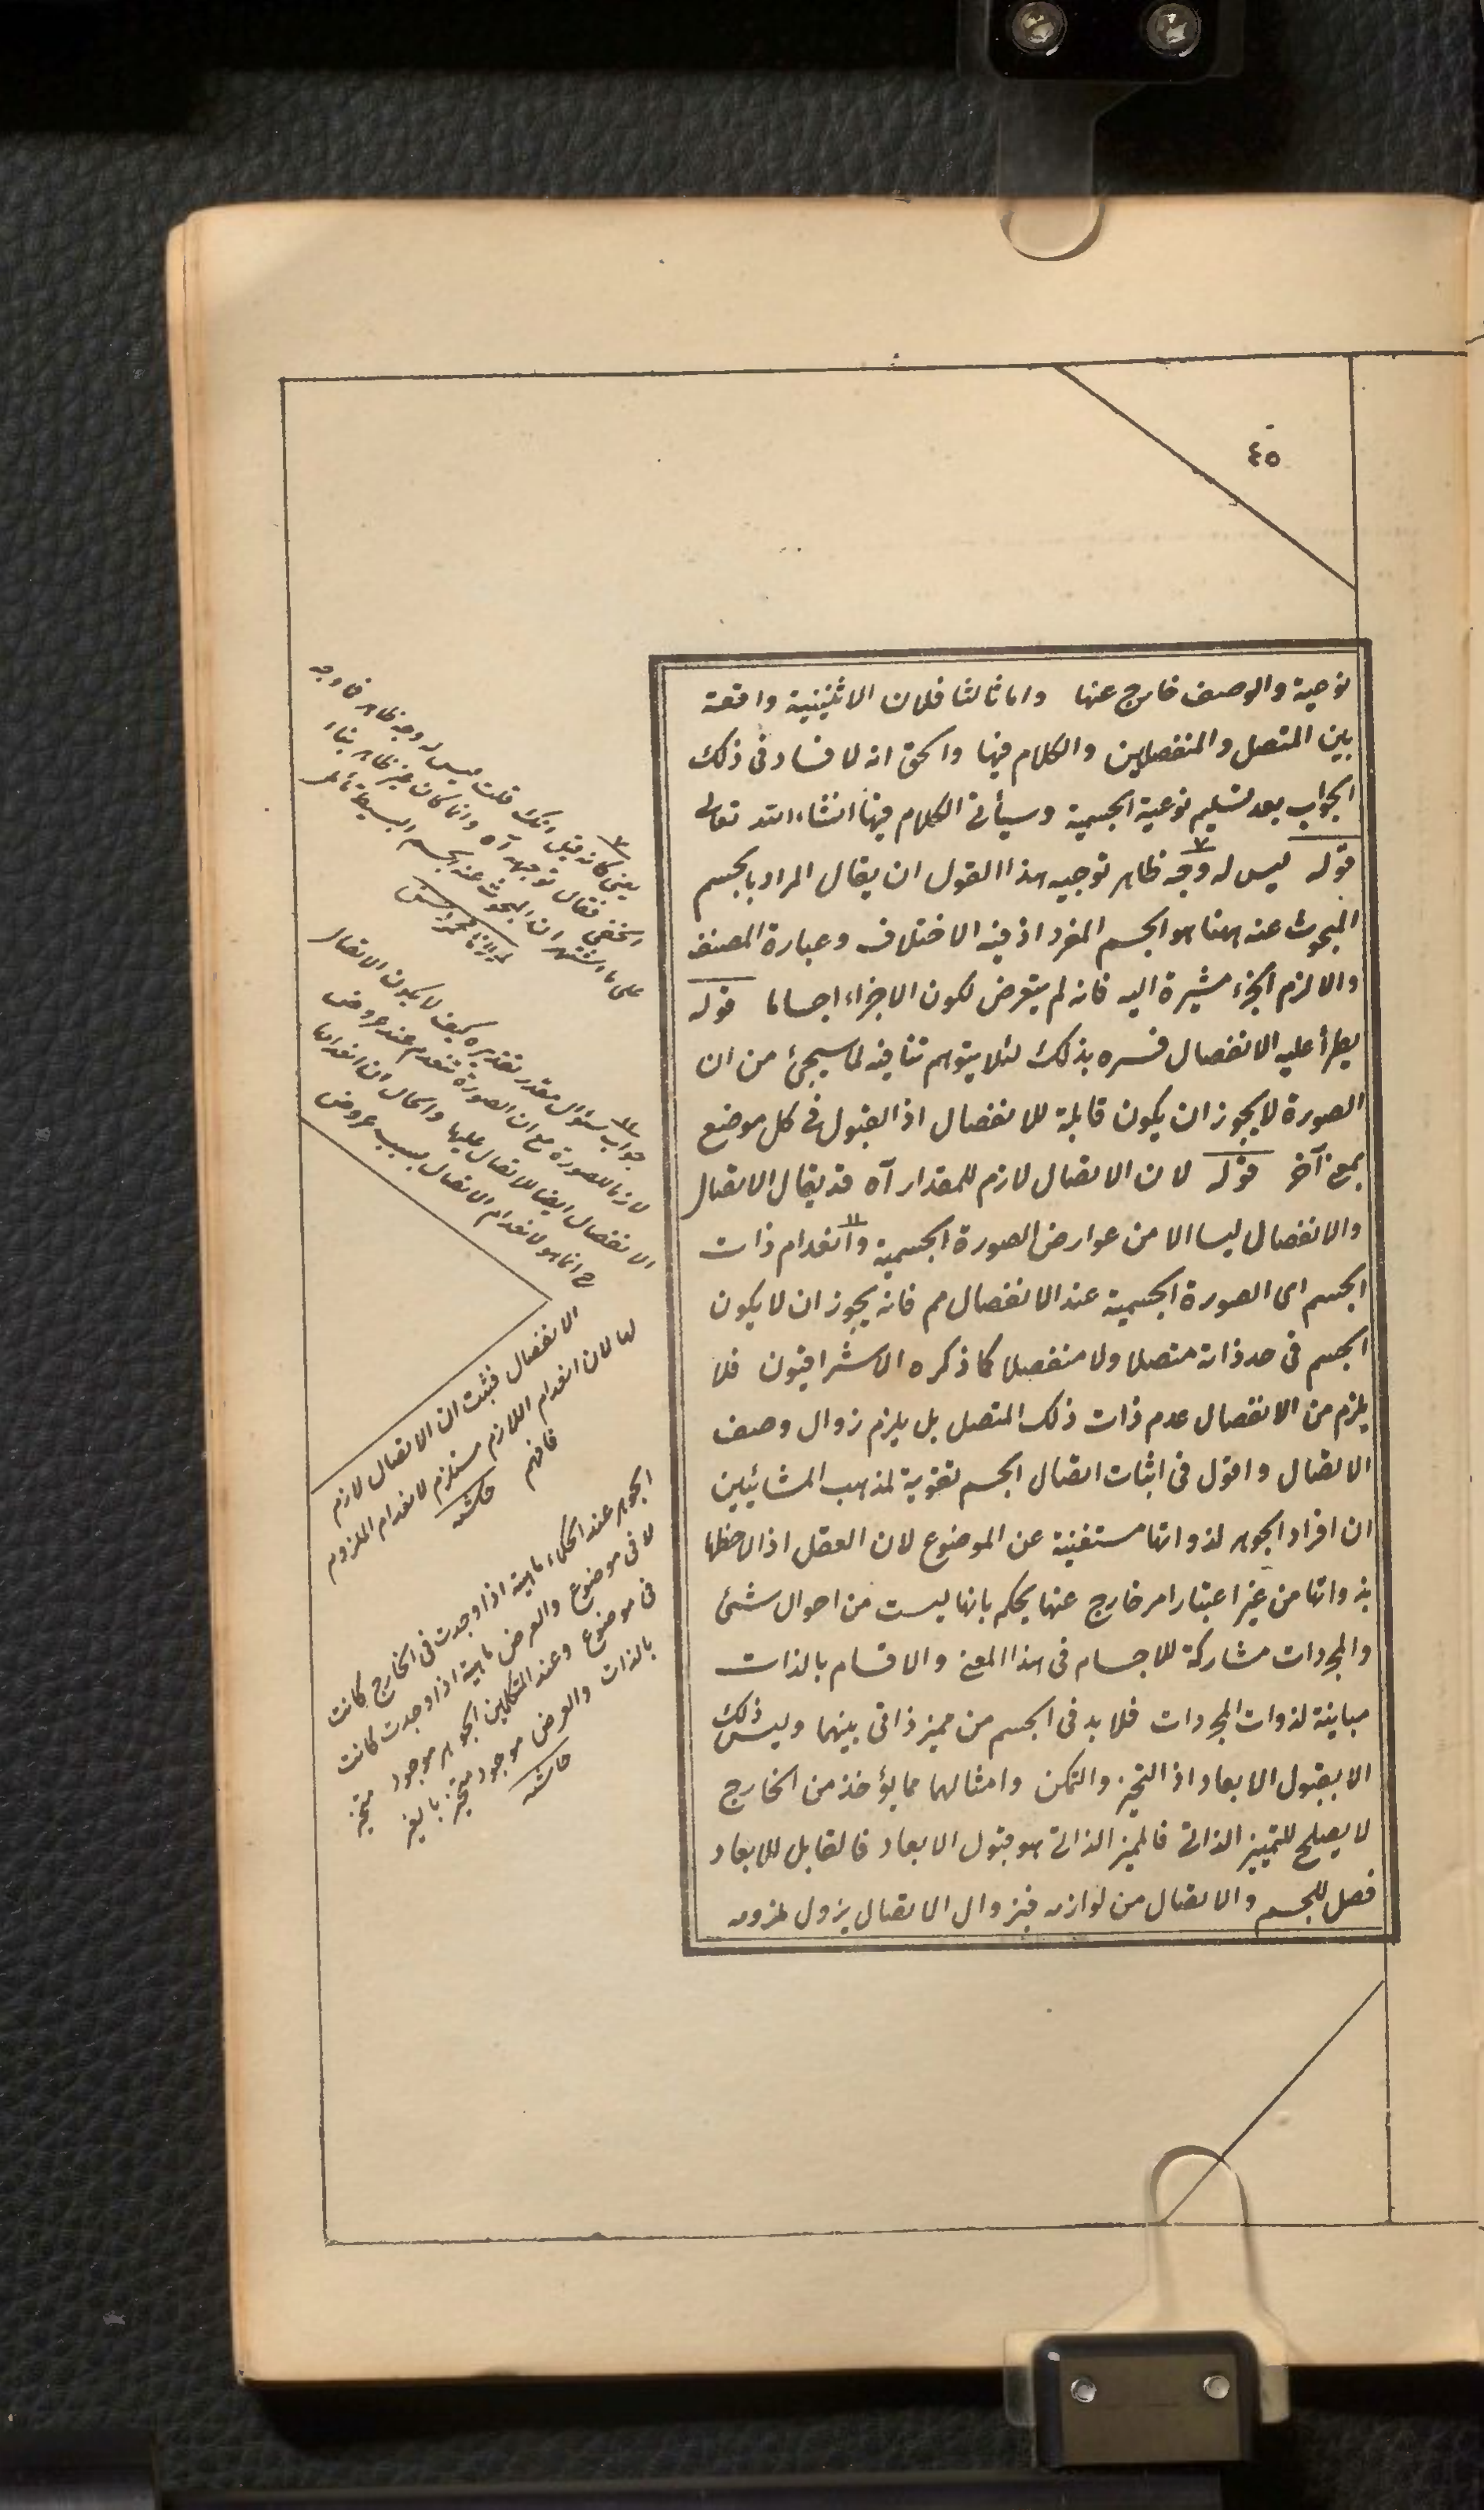 ٤٥
نوعية والوصف خارج عنها واما ثالثا فلان الاثنينية واقعة
بين المتصل والمنفصلين والكلام فيها والحق انه لا فساد فى ذلك
الجواب بعد تسليم نوعية الجسمية وسيأتى الكلام فيها انشاء الله تعالى
قوله ليس له وجه ظاهر توجيه هذا القول ان يقال المراد بالجسم
المبحوث عنه ههنا هو الجسم المفرد اذ فيه الاختلاف وعبارة المصنف
والا لزم الجزء مشيرة اليه فانه لم يتعرض لكون الاجزاء اجساما قوله
يطرأ عليه الانفصال فسره بذلك لئلا يتوهم تنافيه لما سيجئ من ان
الصورة لا يجوز ان يكون قابلة للانفصال اذ القبول فى كل موضع
بمعنى آخر قوله لان الاتصال لازم للمقدار آه قد يقال الاتصال
والانفصال ليسا الا من عوارض الصورة الجسمية وانعدام ذات
الجسم اى الصورة الجسمية عند الانفصال مم فانه يجوز ان لا يكون
الجسم فى حد ذاته متصلا ولا منفصلا كما ذكره الاشراقيون فلا
يلزم من الانفصال عدم ذات ذلك المتصل بل يلزم زوال وصف
الاتصال واقول فى اثبات اتصال الجسم تقوية لمذهب المشائيين
ان افراد الجوهر لذواتها مستغنية عن الموضوع لان العقل اذا لاحظها
بذواتها من غير اعتبار امر خارج عنها يحكم بانها ليست من احوال شئ
والمجردات مشاركة للاجسام فى هذا المعنى والاقسام بالذات
مباينة لذوات المجردات فلا بد فى الجسم من مميز ذاتى بينهما وليس ذلك
الا بقبول الابعاد اذ التحيز والتمكن وامثالهما مما يؤخذ من الخارج
لا يصلح للتمييز الذاتى فالمميز الذاتى هو قبول الابعاد فالقابل للابعاد
فصل للجسم والاتصال من لوازمه فبزوال الاتصال يزول ملزومه
يعنى كانه قيل انك قلت ليس له وجه ظاهر فما وجه
الخفى فقال توجيهه آه وانما كان غير ظاهر بناء
على ما اشتهر ان المبحوث عنه الجسم البسيط تأمل
جواب سؤال مقدر تقديره كيف لا يكون الاتصال
لازما للصورة مع ان الصورة تنعدم عند عروض
الانفصال ايضا للاتصال عليها والحال ان انعدامها
ح انما هو لانعدام الاتصال بسبب عروض
الانفصال فثبت ان الاتصال لازم
لها لان انعدام اللازم مستلزم لانعدام الملزوم
فافهم حاشيه
الجوهر عند الحكماء ماهية اذا وجدت فى الخارج كانت
لا فى موضوع والعرض ماهية اذا وجدت كانت
فى موضوع وعند المتكلمين الجوهر موجود متحيز
بالذات والعرض موجود متحيز بالغير
حاشيه